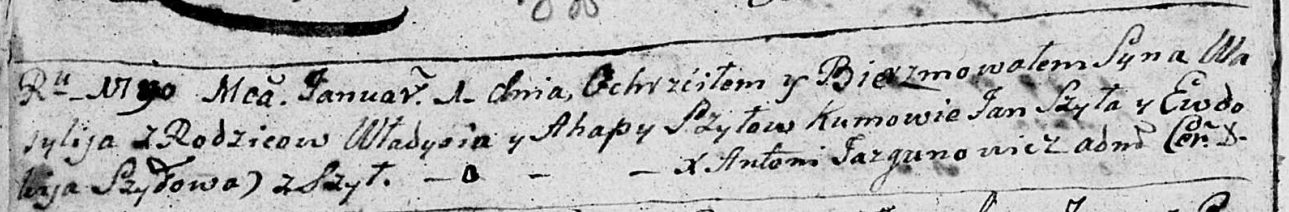 Ru 1790 Mca. Januar. 1 dnia, Ochrzciłem y Bierzmowałem Syna Wa
sylija z Rodzicow Władysia y Ahapy Szyłow Kumowie Jan Szyła y Ewdo
kija Szyłowa) z Szył. — o — — X Antoni Jazgunowicz adm